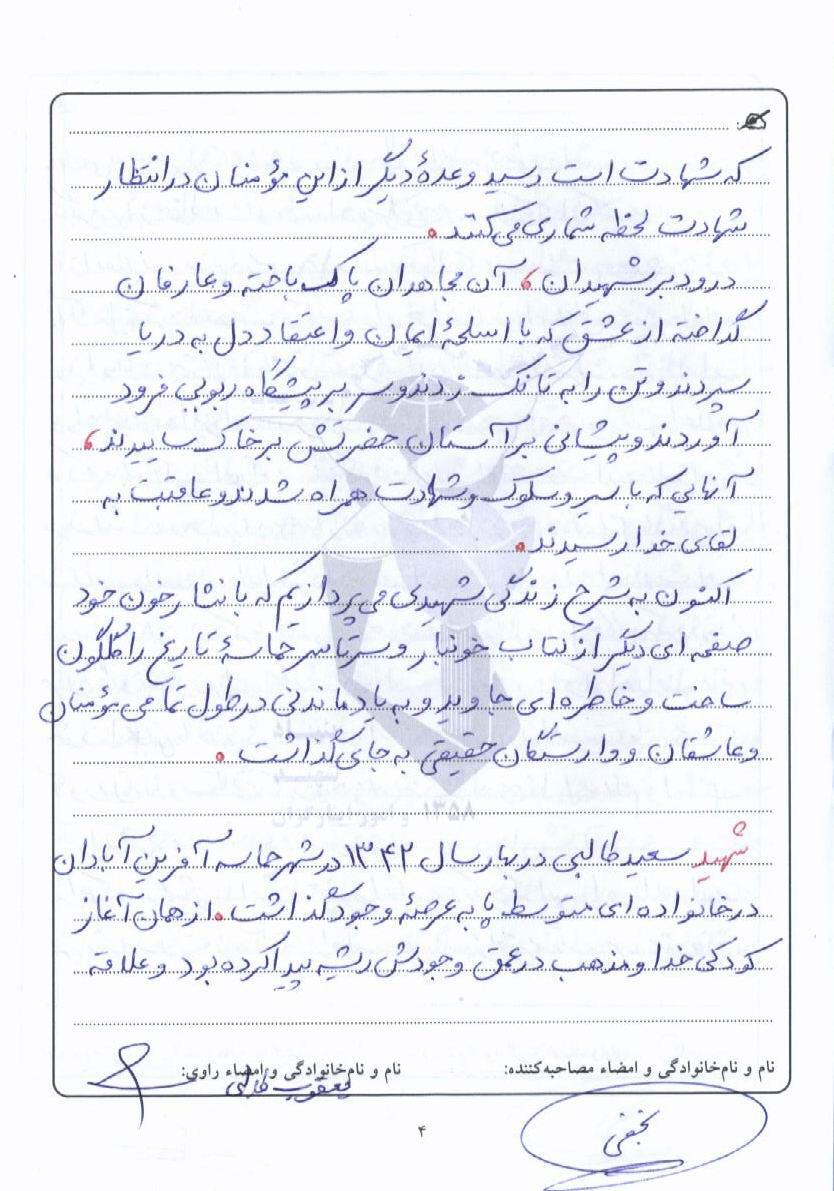 که شهادت است رسید وعدهٔ دیگر از این مؤمنان در انتظار
شهادت لحظه شماری می کنند.
درود بر شهیدان، آن مجاهدان پاک باخته و عارفان
گداخته از عشق که با اسلحهٔ ایمان و اعتقاد دل به دریا
سپردند و تن را به تانک زدند و سر بر پیشگاه ربوبی فرود
آوردند و پیشانی بر آستان حضرتش بر خاک ساییدند،
آنهایی که با سیر و سلوک و شهادت همراه شدند و عاقبت به
لقای خدا رسیدند.
اکنون به شرح زندگی شهیدی می پردازیم که با نثار خون خود
صفحه ای دیگر از کتاب خونبار و سرتاسر حماسهٔ تاریخ را گلگون
ساخت و خاطره ای جاوید و به یاد ماندنی در طول تمامی مؤمنان
و عاشقان و وارستگان حقیقی به جای گذاشت.
شهید سعید طالبی در بهار سال ۱۳۴۲ در شهر حماسه آفرین آبادان
در خانواده ای متوسط پا به عرصهٔ وجود گذاشت. از همان آغاز
کودکی خدا و مذهب در عمق وجودش ریشه پیدا کرده بود و علاقه
نام و نام‌خانوادگی و امضاء مصاحبه‌کننده: نام و نام‌خانوادگی و امضاء راوی:
یعقوب طالبی
نجفی
۴
بنیاد
شهید
و امور ایثارگران ۱۳۵۸